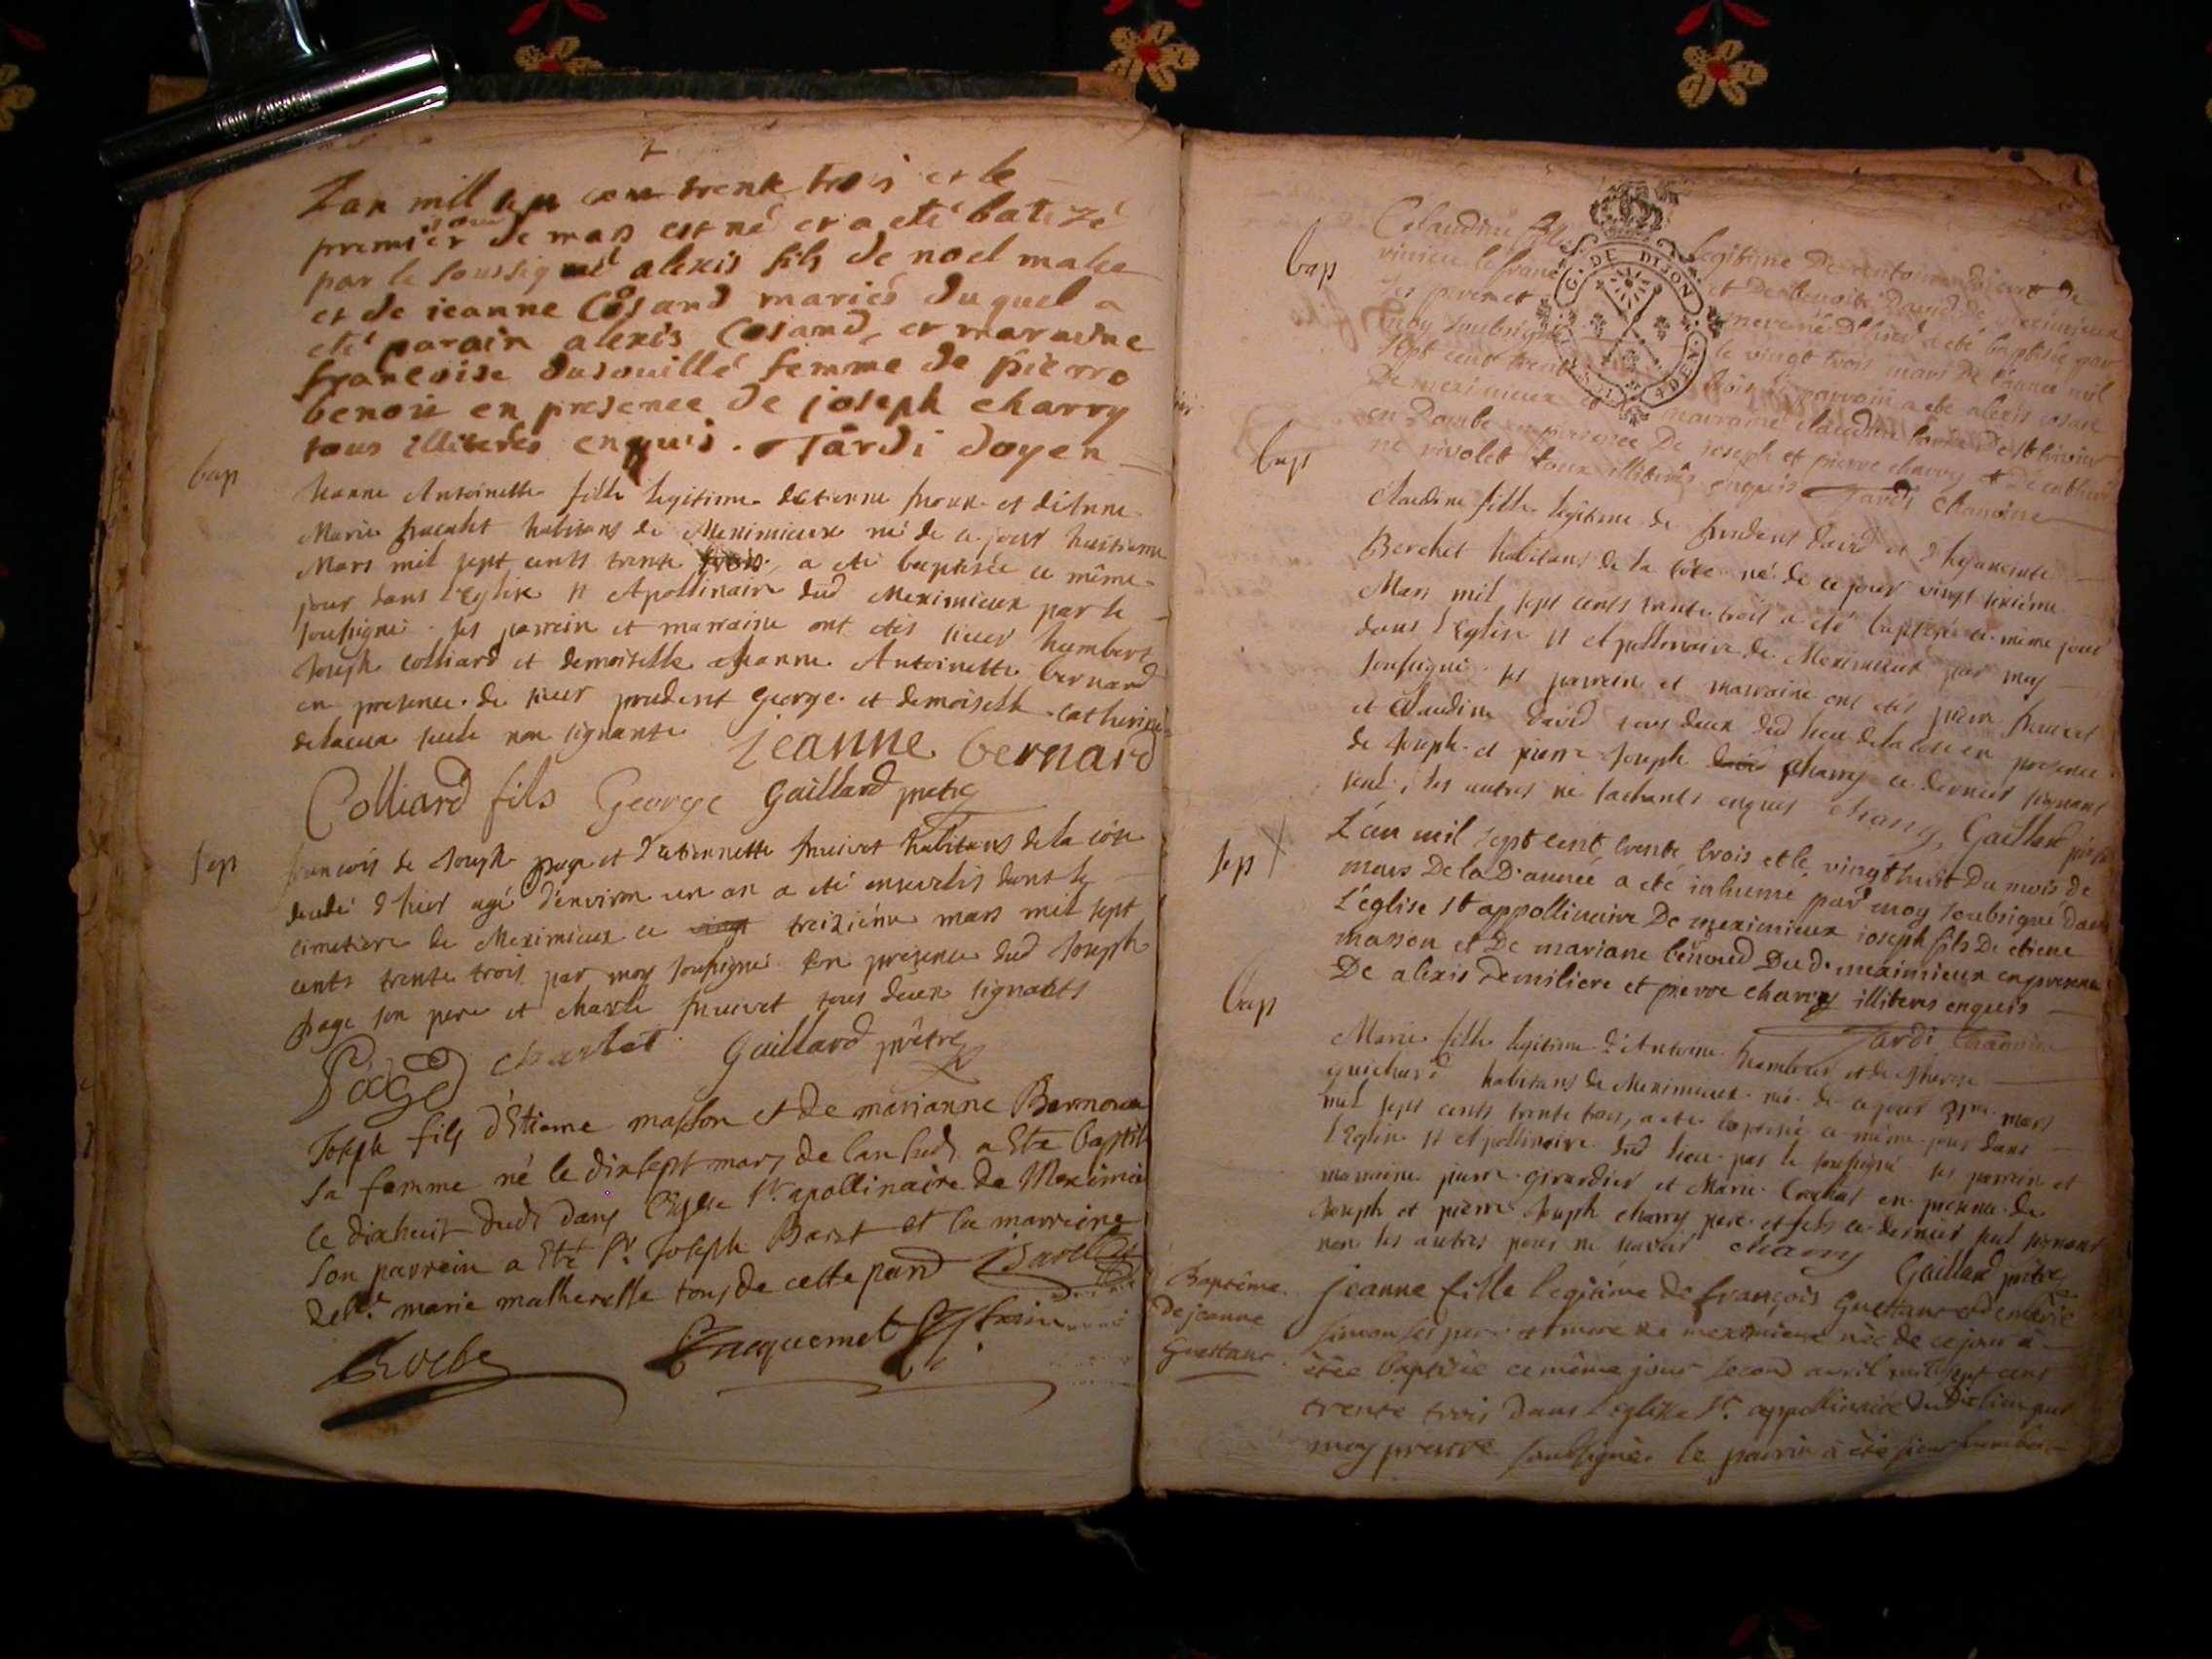 L'an mil sept cent trente trois et le
premier jour de mars est né et a eté batizé
par le soussigné alexis fils de noel
et de jeanne Cosand mariés duquel a
eté parain alexis Cosand, et maraine
francoise femme de pierre
benoit en presence de joseph charry
tous illiterés enquis. Tardi doyen
bap
Jeanne Antoinette fille legitime d'etienne et d'Anne
Marie habitans de Meximieux né de ce jour huitieme
Mars mil sept cents trente trois, a eté baptisée ce même
jour dans l'Eglise St Apollinaire dud Meximieux par le
soussigné. ses parrein et marraine ont etés sieur humbert
Joseph Colliard et demoiselle Jeanne Antoinette bernard
en presence de sieur prudent George et demoiselle catherine
seule non signante jeanne bernard
Colliard fils George Gaillard pretre
sep
francois de Joseph page et d'etiennette habitans de la côte
decedé d'hier agé d'environ un an a eté enseveli dans le
cimetiere de Meximieux ce vingt treizième mars mil sept
cents trente trois par moy soussigné En presence dud Joseph
page son pere et charle tous deux signants
Page charlet Gaillard prêtre
Joseph fils d'Etienne masson et de marianne
sa femme né le dixsept mars de l'an susd a Eté baptisé
le dixhuit dud dans l'Eglise St. apollinaire de Meximieux
son parrein a Eté Sr. Joseph et la marreine
marie tous de cette par
Jacquemet
bap
Claudine legitime De
G. DE DIJON
et De benoite David de meximieux
ses pere et mere née d'hier a eté baptisée par
moy soubsigné le vingt trois mars De l'année mil
sept cent trente trois le parrain a eté alexis cosand
De meximieux et marraine claudine De st trivier
en Dombe en presence De joseph et pierre charry et De catherine
rivolet tous illiterés enquis Tardi Chanoine
bap
Claudine fille legitime de prudent David et d'hyacinte
Berchet habitans de la côte né de ce jour vingt sixième
Mars mil sept cents trente trois a eté baptisée ce même jour
dans l'Eglise St Apollinaire de Meximieux par moy
soussigné ses parrein et marraine ont etés pierre
et Claudine David tous deux dud lieu de la côte en presence
de Joseph et pierre Joseph charry ce dernier signant
seul, les autres ne sachants enquis charry, Gaillard prêtre
sep
L'an mil sept cent trente trois et le vingt huit du mois de
mars De lad. année a eté inhumé par moy soubsigné dans
L'église St appollinaire De meximieux joseph fils De etiene
masson et De mariane benoud Dud. meximieux en presence
De alexis et pierre charry illiteres enquis
Tardi Chanoine
bap
Marie fille legitime d'Antoine et de
guichard habitans de Meximieux né de ce jour 31me mars
mil sept cents trente trois, a eté baptisée ce même jour dans
l'Eglise St Apollinaire dud lieu par le soussigné ses parrein et
marraine pierre girardier et Marie en presence de
Joseph et pierre Joseph charry pere et fils ce dernier seul signant
non les autres pour ne savoir charry
Gaillard prêtre
Baptême
de jeanne
Guettant
jeanne fille legitime de françois Guettant
simon ses pere et mere de meximieux née de ce jour à
étée baptisée ce même jour second avril mil sept cens
trente trois dans l'eglise St. appollinaire dudit lieu par
moy prestre soubsigné. le parrin à été sieur humbert